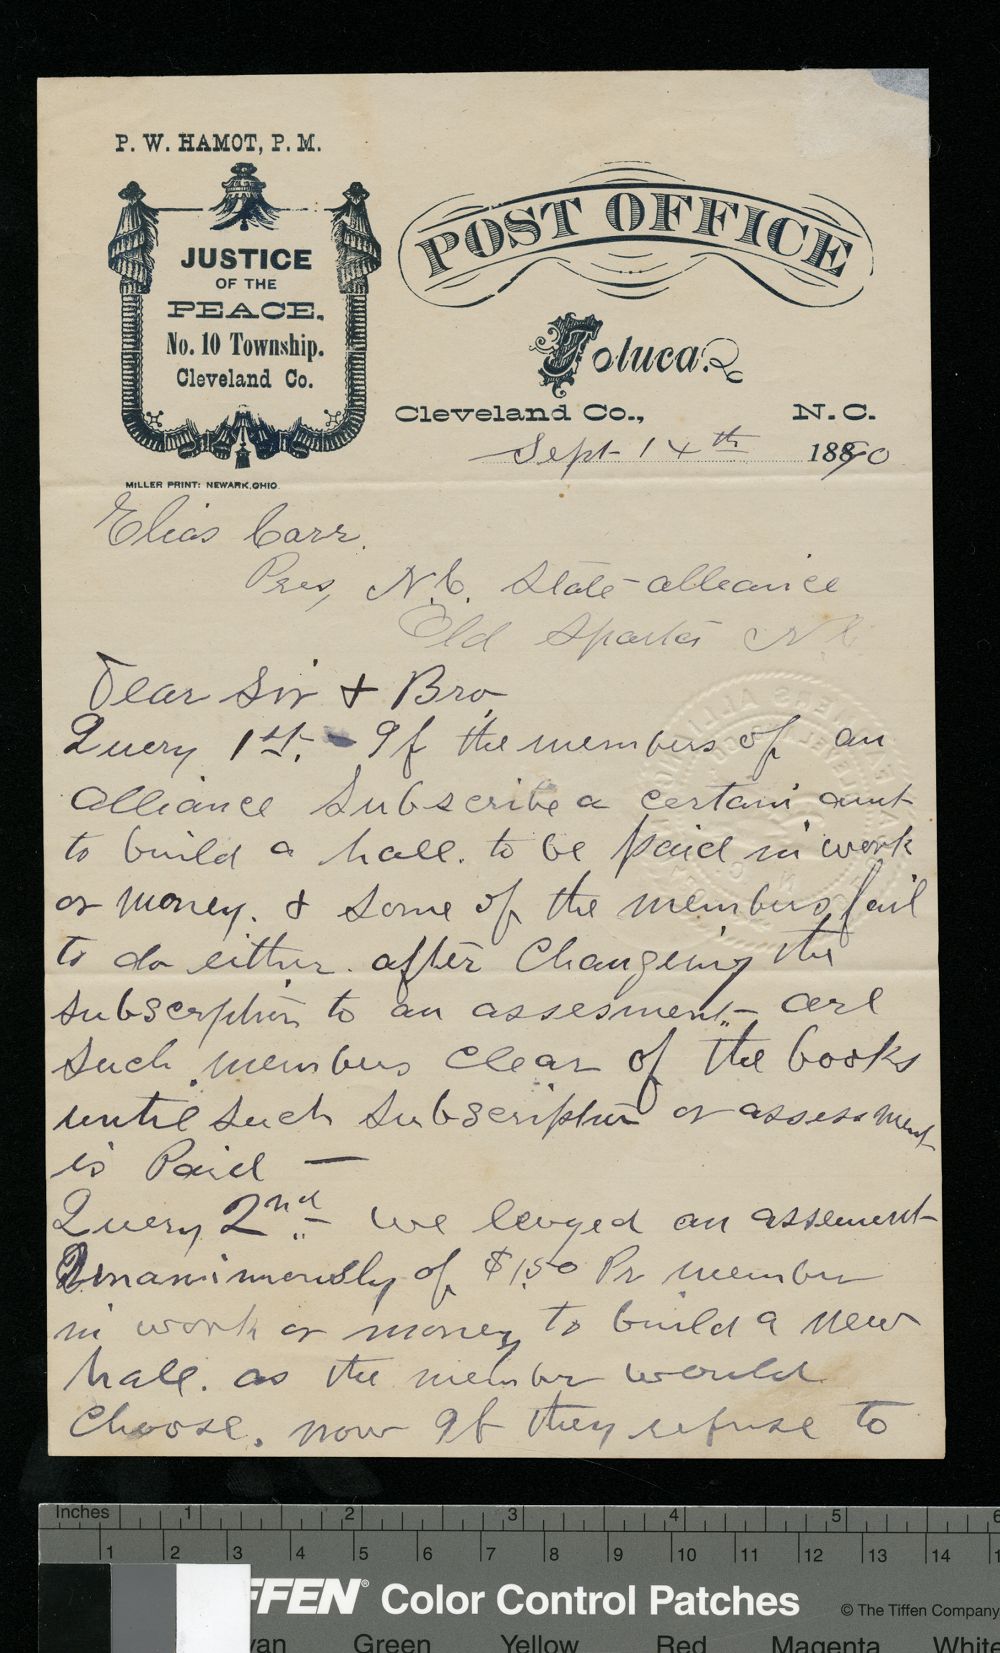 P. W. HAMOT, P. M.
JUSTICE
OF THE
PEACE,
No. 10 Township.
Cleveland Co.
MILLER PRINT: NEWARK, OHIO
POST OFFICE
Toluca
Cleveland Co., N. C.
Sept 14th 1890
Elias Carr.
Pres, N.C. State alliance
Old Sparta N C
Dear Sir & Bro,
Query 1st. If the members of an
alliance Subscribe a certain amt
to build a hall. to be paid in work
or money. & some of the members fail
to do either. after Changeing the
subscription to an assesment are
such members clear of the books
until such subscription or assessment
is Paid —
Query 2nd we levyed an assement
Unanimously of $1.50 Pr member
in work or money to build a new
hall. as the member would
Choose. now If they refuse to
Inches 1 2 3 4 5 6
1 2 3 4 5 6 7 8 9 10 11 12 13 14 1
FFEN® Color Control Patches
© The Tiffen Company
yan Green Yellow Red Magenta White